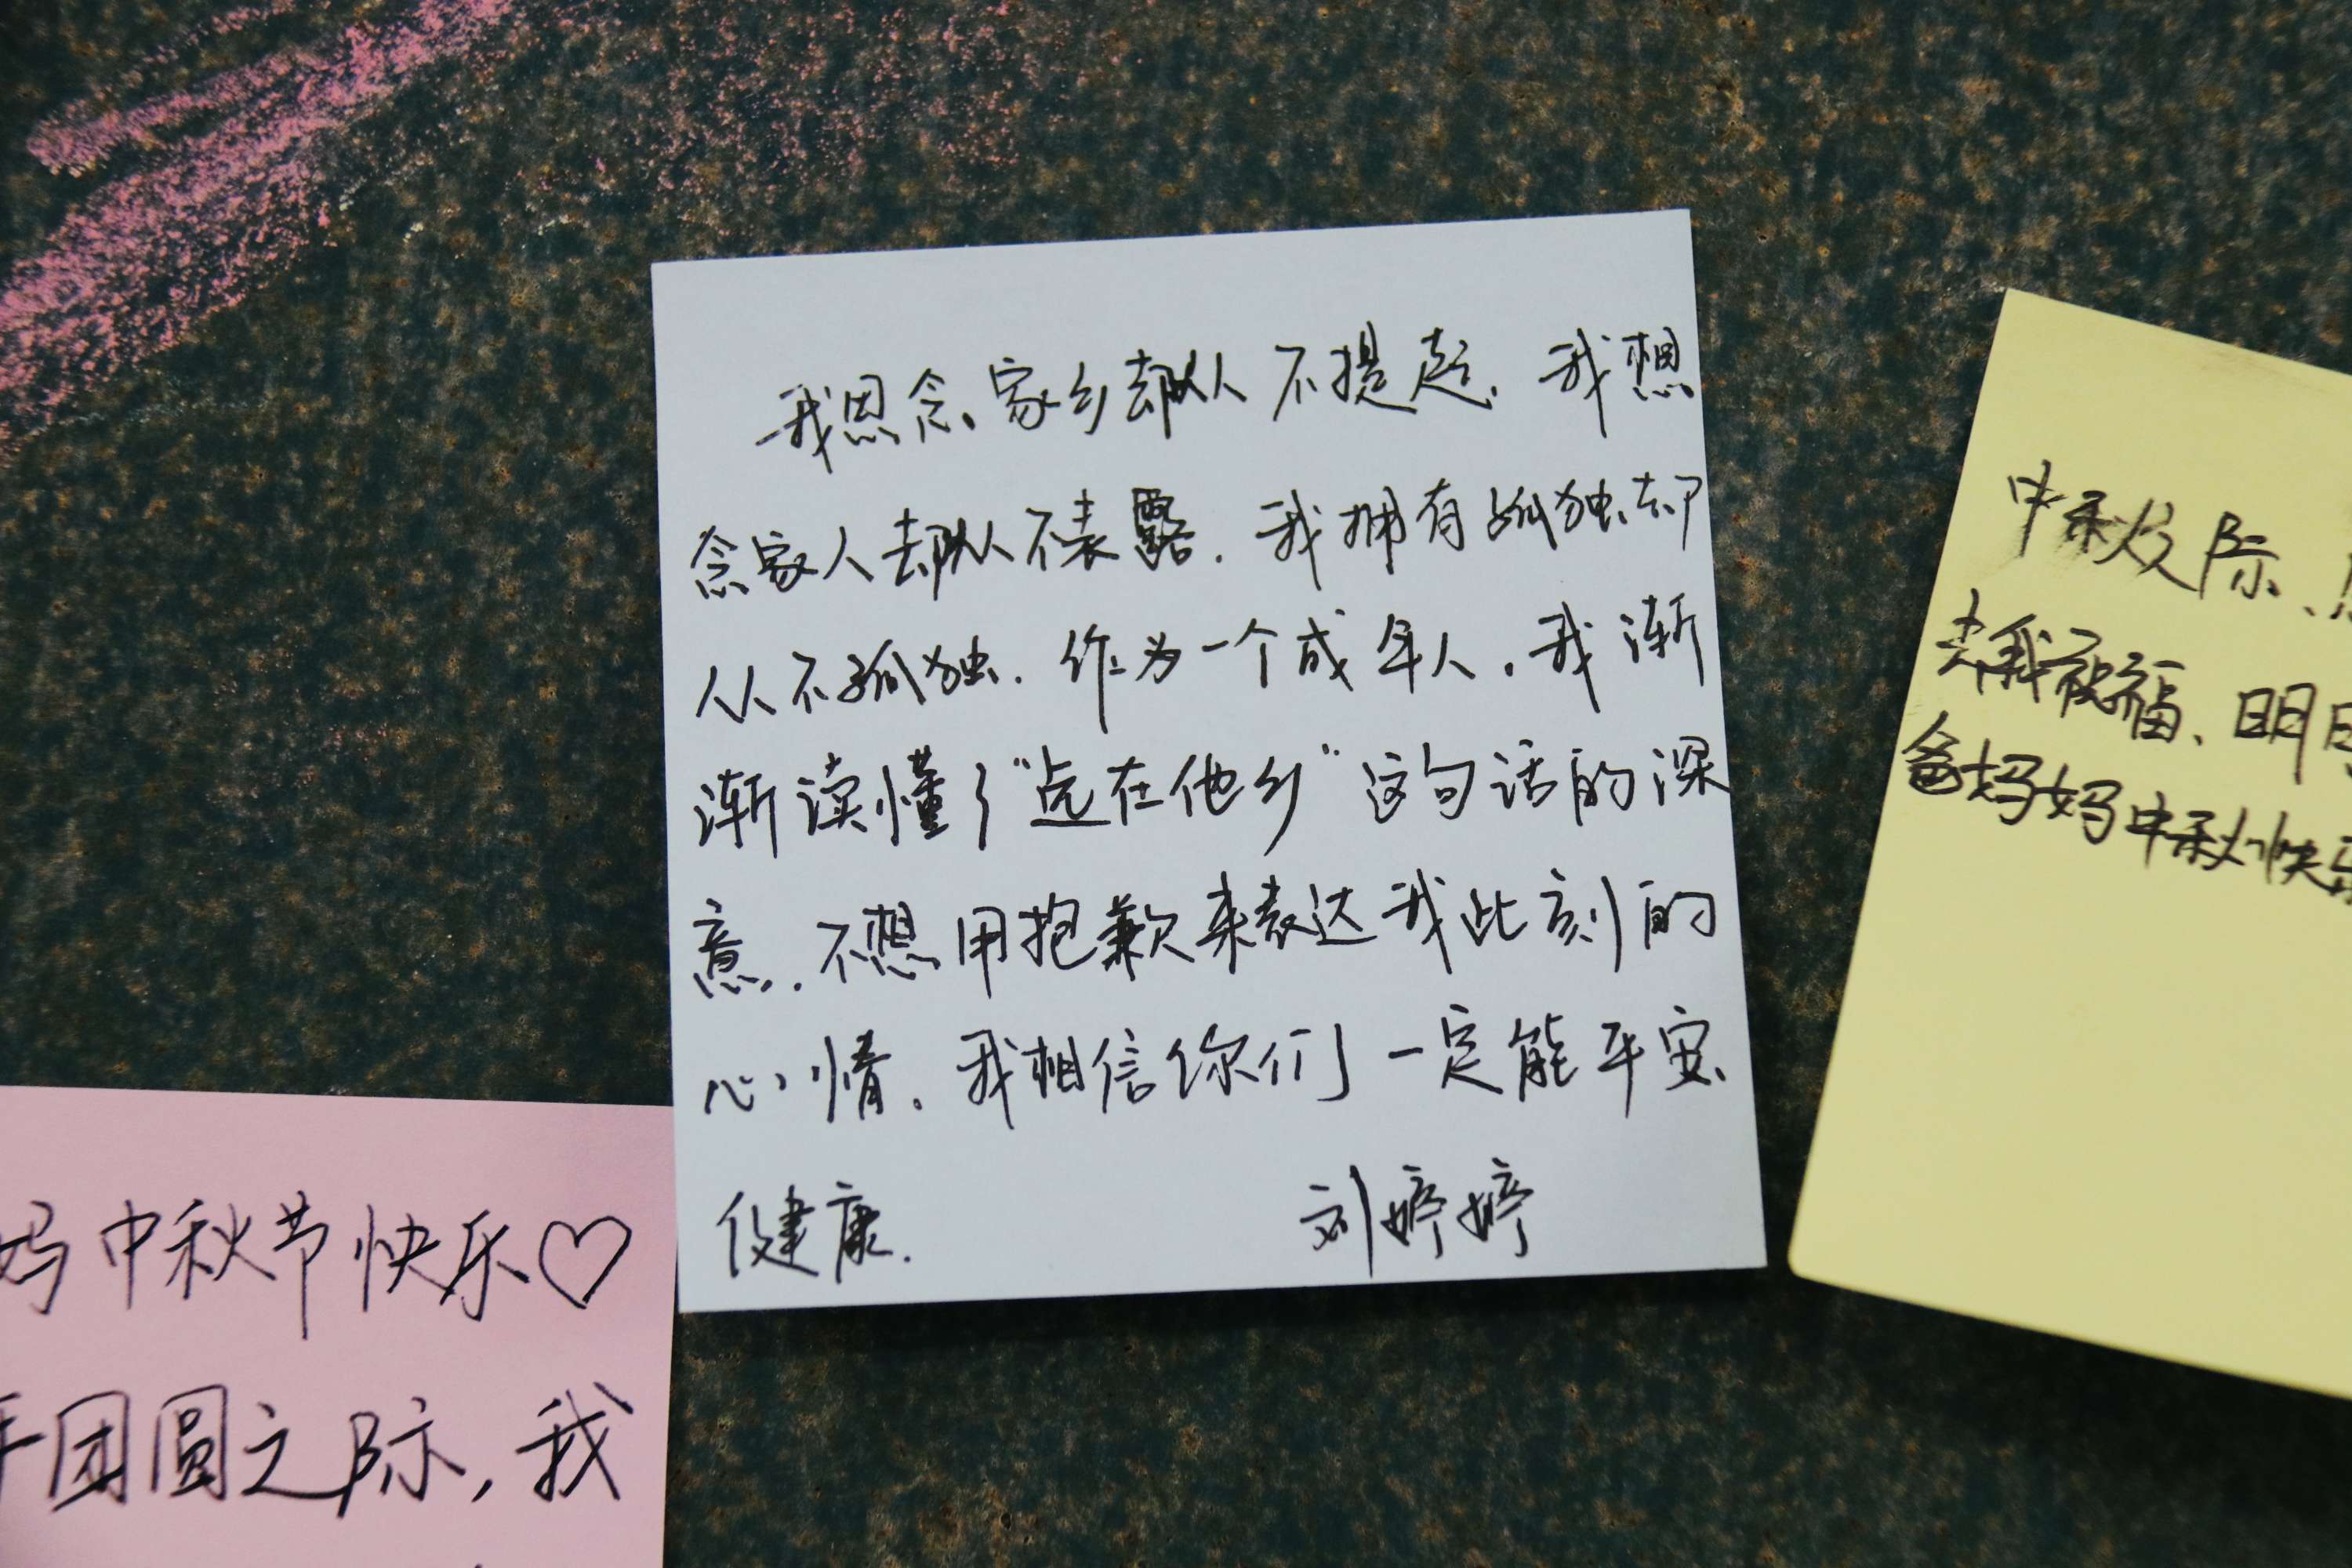 我思念家乡却从不提起.我想
念家人却从不表露.我拥有孤独却
从不孤独.作为一个成年人.我渐
渐读懂了“远在他乡”这句话的深
意.不想用抱歉来表达我此刻的
心情.我相信你们一定能平安、
健康.
刘婷婷
中秋之际、
我祝福、明月
爸妈妈中秋快乐
妈中秋节快乐♡
团圆之际,我